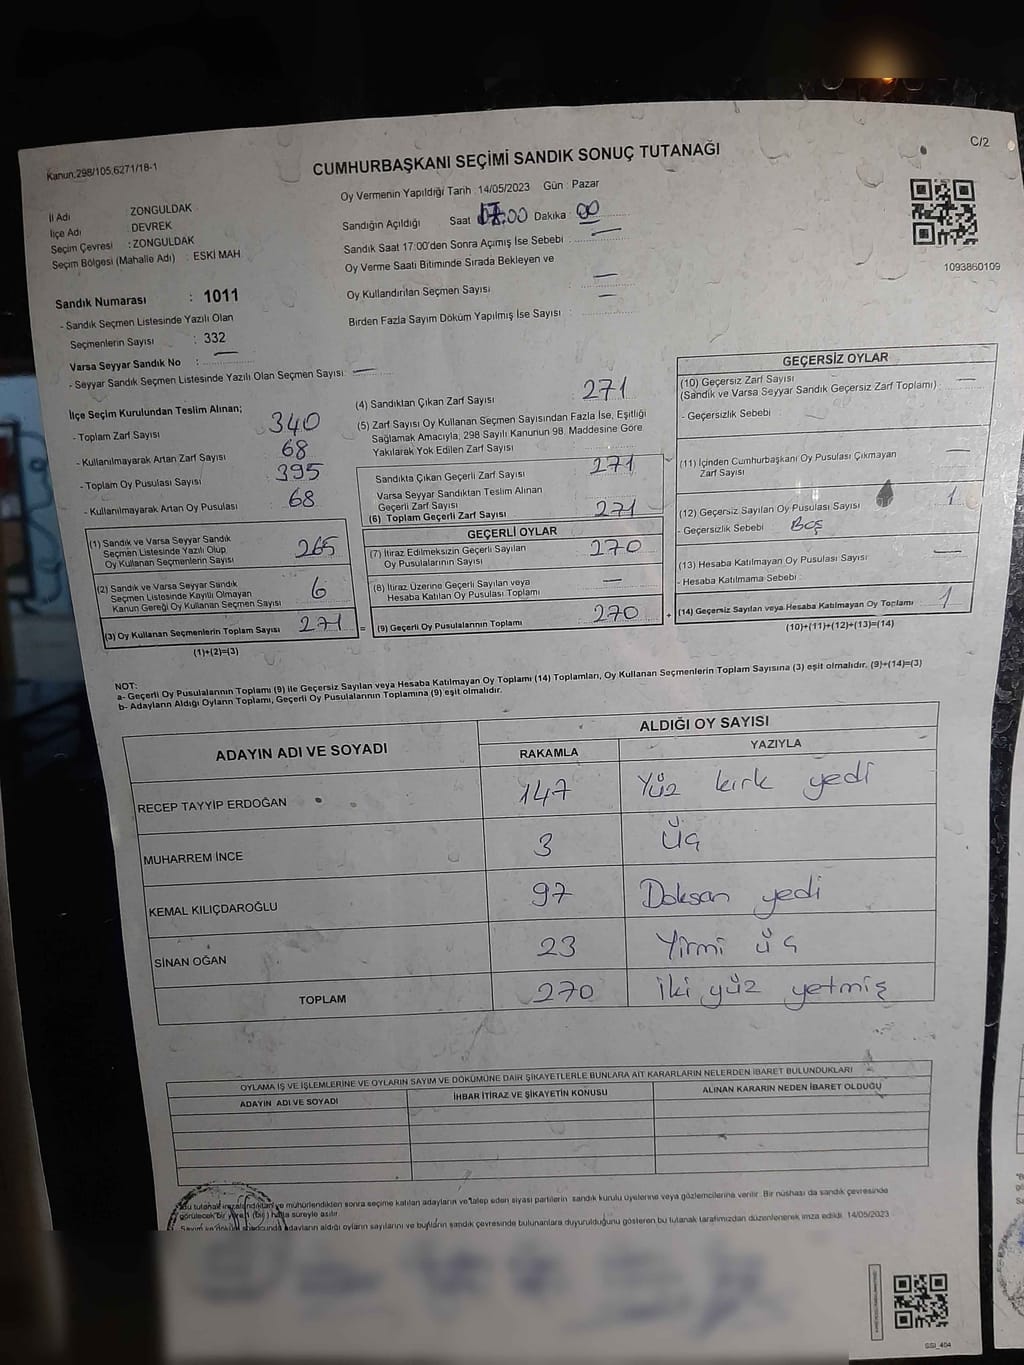 Kanun,298/105,6271/18-1
CUMHURBAŞKANI SEÇİMİ SANDIK SONUÇ TUTANAĞI
C/2
Oy Vermenin Yapıldığı Tarih : 14/05/2023 Gün : Pazar
İl Adı : ZONGULDAK
İlçe Adı : DEVREK
Seçim Çevresi : ZONGULDAK
Seçim Bölgesi (Mahalle Adı) : ESKİ MAH
Sandığın Açıldığı Saat 17:00 Dakika : 00
Sandık Saat 17:00'den Sonra Açımış İse Sebebi : —
Oy Verme Saati Bitiminde Sırada Bekleyen ve
Oy Kullandırılan Seçmen Sayısı : —
Birden Fazla Sayım Döküm Yapılmış İse Sayısı : —
1093860109
Sandık Numarası : 1011
- Sandık Seçmen Listesinde Yazılı Olan
Seçmenlerin Sayısı : 332
Varsa Seyyar Sandık No : —
- Seyyar Sandık Seçmen Listesinde Yazılı Olan Seçmen Sayısı: —
İlçe Seçim Kurulundan Teslim Alınan;
- Toplam Zarf Sayısı 340
- Kullanılmayarak Artan Zarf Sayısı 68
- Toplam Oy Pusulası Sayısı 395
- Kullanılmayarak Artan Oy Pusulası 68
(1) Sandık ve Varsa Seyyar Sandık
Seçmen Listesinde Yazılı Olup
Oy Kullanan Seçmenlerin Sayısı 265
(2) Sandık ve Varsa Seyyar Sandık
Seçmen Listesinde Kayıtlı Olmayan
Kanun Gereği Oy Kullanan Seçmen Sayısı 6
(3) Oy Kullanan Seçmenlerin Toplam Sayısı 271 =
(1)+(2)=(3)
(4) Sandıktan Çıkan Zarf Sayısı 271
(5) Zarf Sayısı Oy Kullanan Seçmen Sayısından Fazla İse, Eşitliği
Sağlamak Amacıyla, 298 Sayılı Kanunun 98. Maddesine Göre
Yakılarak Yok Edilen Zarf Sayısı
Sandıkta Çıkan Geçerli Zarf Sayısı 271
Varsa Seyyar Sandıktan Teslim Alınan
Geçerli Zarf Sayısı
(6) Toplam Geçerli Zarf Sayısı 271
GEÇERLİ OYLAR
(7) İtiraz Edilmeksizin Geçerli Sayılan
Oy Pusulalarının Sayısı 270
(8) İtiraz Üzerine Geçerli Sayılan veya
Hesaba Katılan Oy Pusulası Toplamı —
(9) Geçerli Oy Pusulalarının Toplamı 270 +
GEÇERSİZ OYLAR
(10) Geçersiz Zarf Sayısı
(Sandık ve Varsa Seyyar Sandık Geçersiz Zarf Toplamı) : —
- Geçersizlik Sebebi :
(11) İçinden Cumhurbaşkanı Oy Pusulası Çıkmayan
Zarf Sayısı —
(12) Geçersiz Sayılan Oy Pusulası Sayısı 1
- Geçersizlik Sebebi Boş
(13) Hesaba Katılmayan Oy Pusulası Sayısı —
- Hesaba Katılmama Sebebi :
(14) Geçersiz Sayılan veya Hesaba Katılmayan Oy Toplamı : 1
(10)+(11)+(12)+(13)=(14)
NOT:
a- Geçerli Oy Pusulalarının Toplamı (9) ile Geçersiz Sayılan veya Hesaba Katılmayan Oy Toplamı (14) Toplamları, Oy Kullanan Seçmenlerin Toplam Sayısına (3) eşit olmalıdır. (9)+(14)=(3)
b- Adayların Aldığı Oyların Toplamı, Geçerli Oy Pusulalarının Toplamına (9) eşit olmalıdır.
ADAYIN ADI VE SOYADI
ALDIĞI OY SAYISI
RAKAMLA YAZIYLA
RECEP TAYYİP ERDOĞAN 147 Yüz kırk yedi
MUHARREM İNCE 3 Üç
KEMAL KILIÇDAROĞLU 97 Doksan yedi
SİNAN OĞAN 23 Yirmi üç
TOPLAM 270 İki yüz yetmiş
OYLAMA İŞ VE İŞLEMLERİNE VE OYLARIN SAYIM VE DÖKÜMÜNE DAİR ŞİKAYETLERLE BUNLARA AİT KARARLARIN NELERDEN İBARET BULUNDUKLARI
ADAYIN ADI VE SOYADI İHBAR İTİRAZ VE ŞİKAYETİN KONUSU ALINAN KARARIN NEDEN İBARET OLDUĞU
Bu tutanak imzalandıktan ve mühürlendikten sonra seçime katılan adayların ve talep eden siyasi partilerin sandık kurulu üyelerine veya gözlemcilerine verilir. Bir nüshası da sandık çevresinde
görülecek bir yere 1 (bir) hafta süreyle asılır.
adayların aldığı oyların sayılarını ve bunların sandık çevresinde bulunanlara duyurulduğunu gösteren bu tutanak tarafımızdan düzenlenerek imza edildi. 14/05/2023
SSI_404